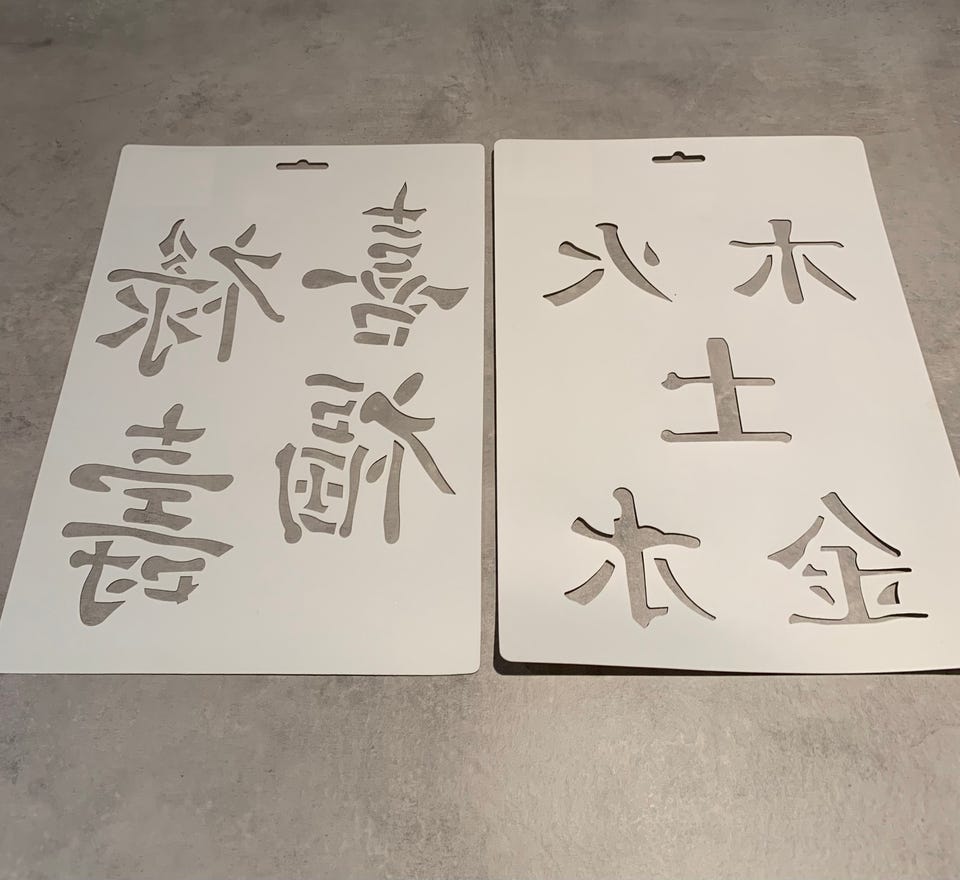 祿 喜
壽 福
火 木
土
水 金